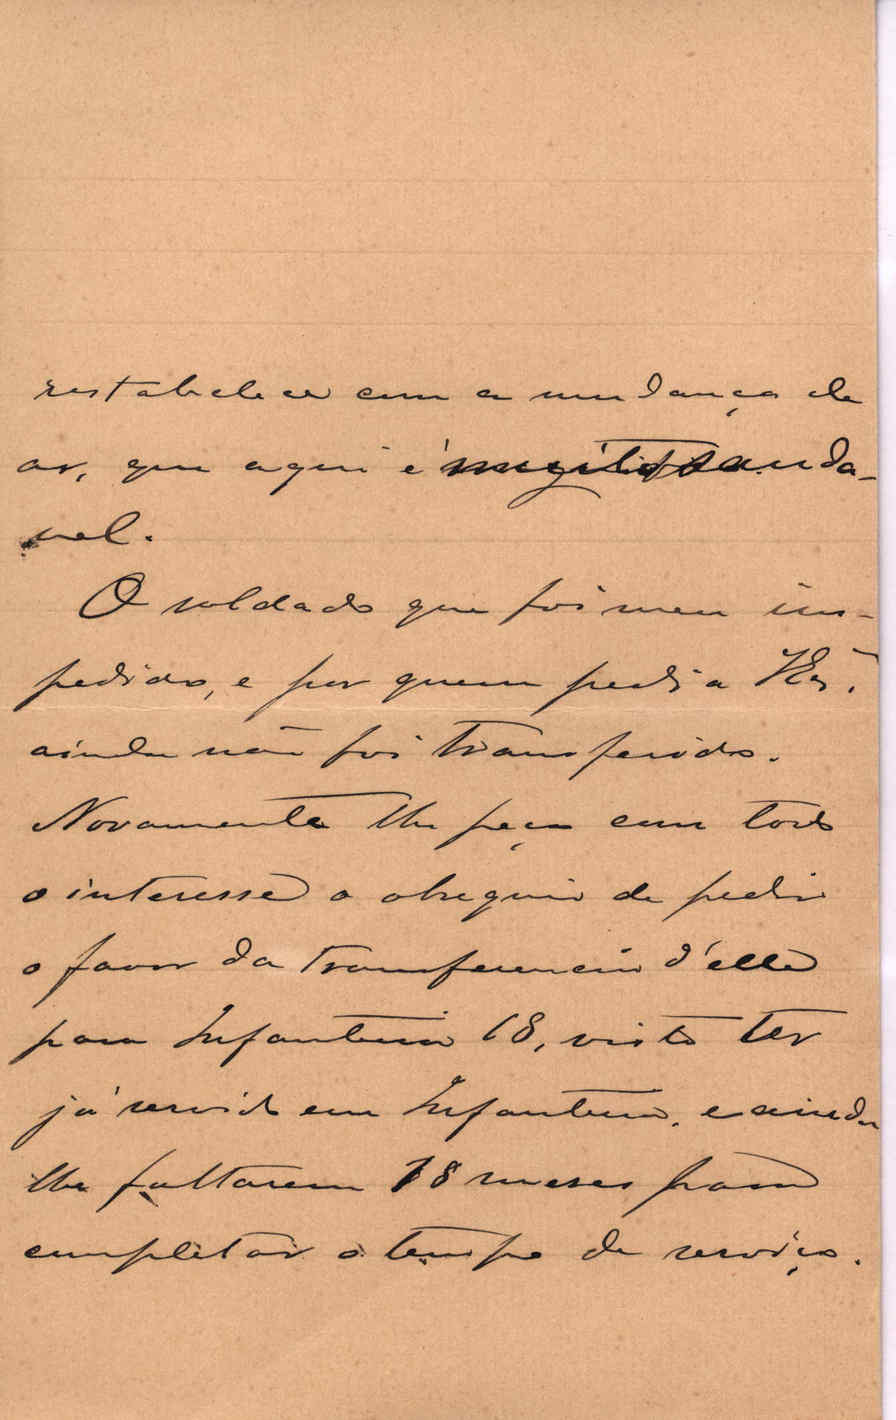 restabelecer com a mudança de
ar, que aqui é muito sauda-
vel.
O soldado que foi meu im-
pedido, e por quem pedi a VEx.ª,
ainda não foi transferido.
Novamente lhe peço com todo
o interesse o obsequio de pedir
o favor da transferencia d'elle
para Infanteria 18, visto ter
já servido em Infanteria, e ainda
lhe faltarem 18 meses para
completar o tempo de serviço.